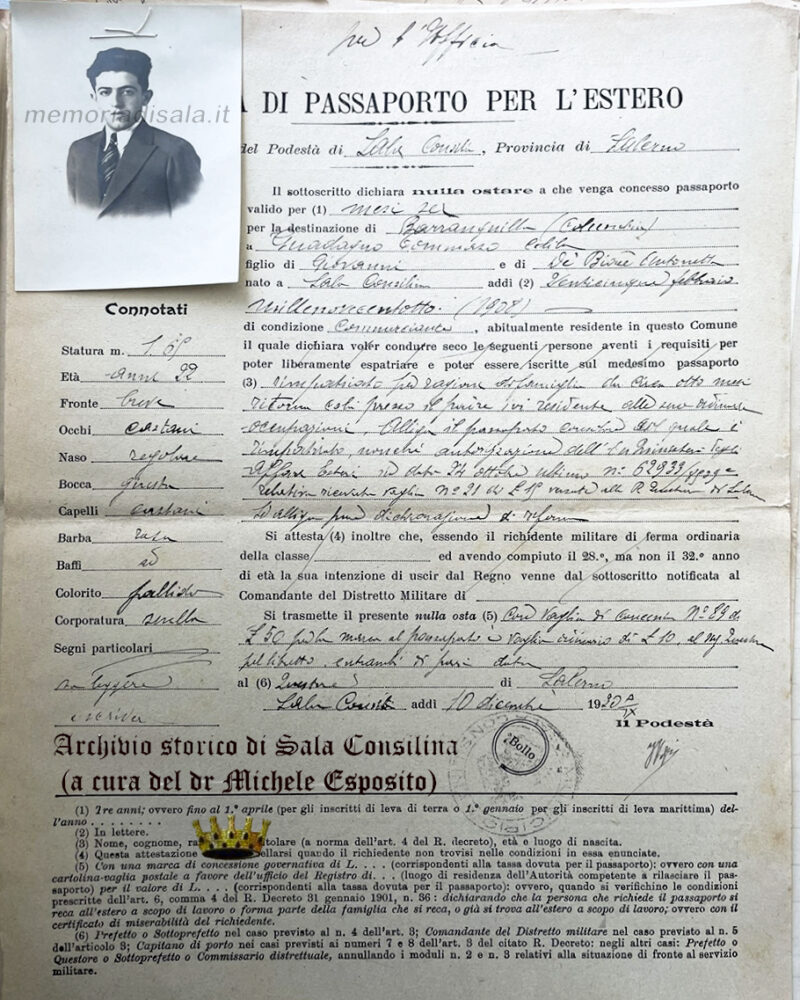 per l'Ufficio
memoriadisala.it
A DI PASSAPORTO PER L'ESTERO
del Podestà di Sala Consilina, Provincia di Salerno
Il sottoscritto dichiara nulla ostare a che venga concesso passaporto
valido per (1) mesi sei
per la destinazione di Barranquilla (Columbia)
a Guadagno Tommaso
figlio di Giovanni e di Di Biase Antonetta
nato a Sala Consilina addi (2) Venticinque febbraio
millenovecentotto (1908)
di condizione Commerciante, abitualmente residente in questo Comune
il quale dichiara voler condurre seco le seguenti persone aventi i requisiti per
poter liberamente espatriare e poter essere iscritte sul medesimo passaporto
(3) rimpatriato per ragioni di famiglia da circa otto mesi
ritorna colà presso il padre ivi residente alle sue ordinarie
occupazioni. Allega il passaporto col quale è
rimpatriato, nonchè autorizzazione dell'On. Ministero degli
Affari Esteri in data 24 ottobre ultimo n° 62933
vaglia N° 21 di L 15 alla R. Questura di Salerno
Si allega pure dichiarazione di
Connotati
Statura m. 1.65
Età anni 22
Fronte breve
Occhi castani
Naso regolare
Bocca giusta
Capelli castani
Barba rasa
Baffi id
Colorito pallido
Corporatura snella
Segni particolari
sa leggere
e scrivere
Si attesta (4) inoltre che, essendo il richidente militare di ferma ordinaria
della classe ed avendo compiuto il 28.º, ma non il 32.º anno
di età la sua intenzione di uscir dal Regno venne dal sottoscritto notificata al
Comandante del Distretto Militare di
Si trasmette il presente nulla osta (5) con Vaglia di N° 89 di
L 50 per la marca al passaporto e vaglia ordinario di L 10, al
pel libretto, entrambi di pari data
al (6) Questore di Salerno
Sala Consilina addi 10 dicembre 1930
Il Podestà
Bollo
Archivio storico di Sala Consilina
(a cura del dr Michele Esposito)
(1) Tre anni; ovvero fino al 1.º aprile (per gli inscritti di leva di terra o 1.º gennaio per gli inscritti di leva marittima) del-
l'anno . . . . . . . .
(2) In lettere.
(3) Nome, cognome, titolare (a norma dell'art. 4 del R. decreto), età e luogo di nascita.
(4) Questa attestazione quando il richiedente non trovisi nelle condizioni in essa enunciate.
(5) Con una marca di concessione governativa di L. . . . (corrispondenti alla tassa dovuta per il passaporto); ovvero con una
cartolina-vaglia postale a favore dell'ufficio del Registro di. . . (luogo di residenza dell'Autorità competente a rilasciare il pas-
saporto) per il valore di L. . . . (corrispondenti alla tassa dovuta per il passaporto): ovvero, quando si verifichino le condizioni
prescritte dell'art. 6, comma 4 del R. Decreto 31 gennaio 1901, n. 36 : dichiarando che la persona che richiede il passaporto si
reca all'estero a scopo di lavoro o forma parte della famiglia che si reca, o già si trova all'estero a scopo di lavoro; ovvero con il
certificato di miserabilità del richidente.
(6) Prefetto o Sottoprefetto nel caso previsto al n. 4 dell'art. 3; Comandante del Distretto militare nel caso previsto al n. 5
dell'articolo 3; Capitano di porto nei casi previsti ai numeri 7 e 8 dell'art. 3 del citato R. Decreto: negli altri casi: Prefetto o
Questore o Sottoprefetto o Commissario distrettuale, annullando i moduli n. 2 e n. 3 relativi alla situazione di fronte al servizio
militare.